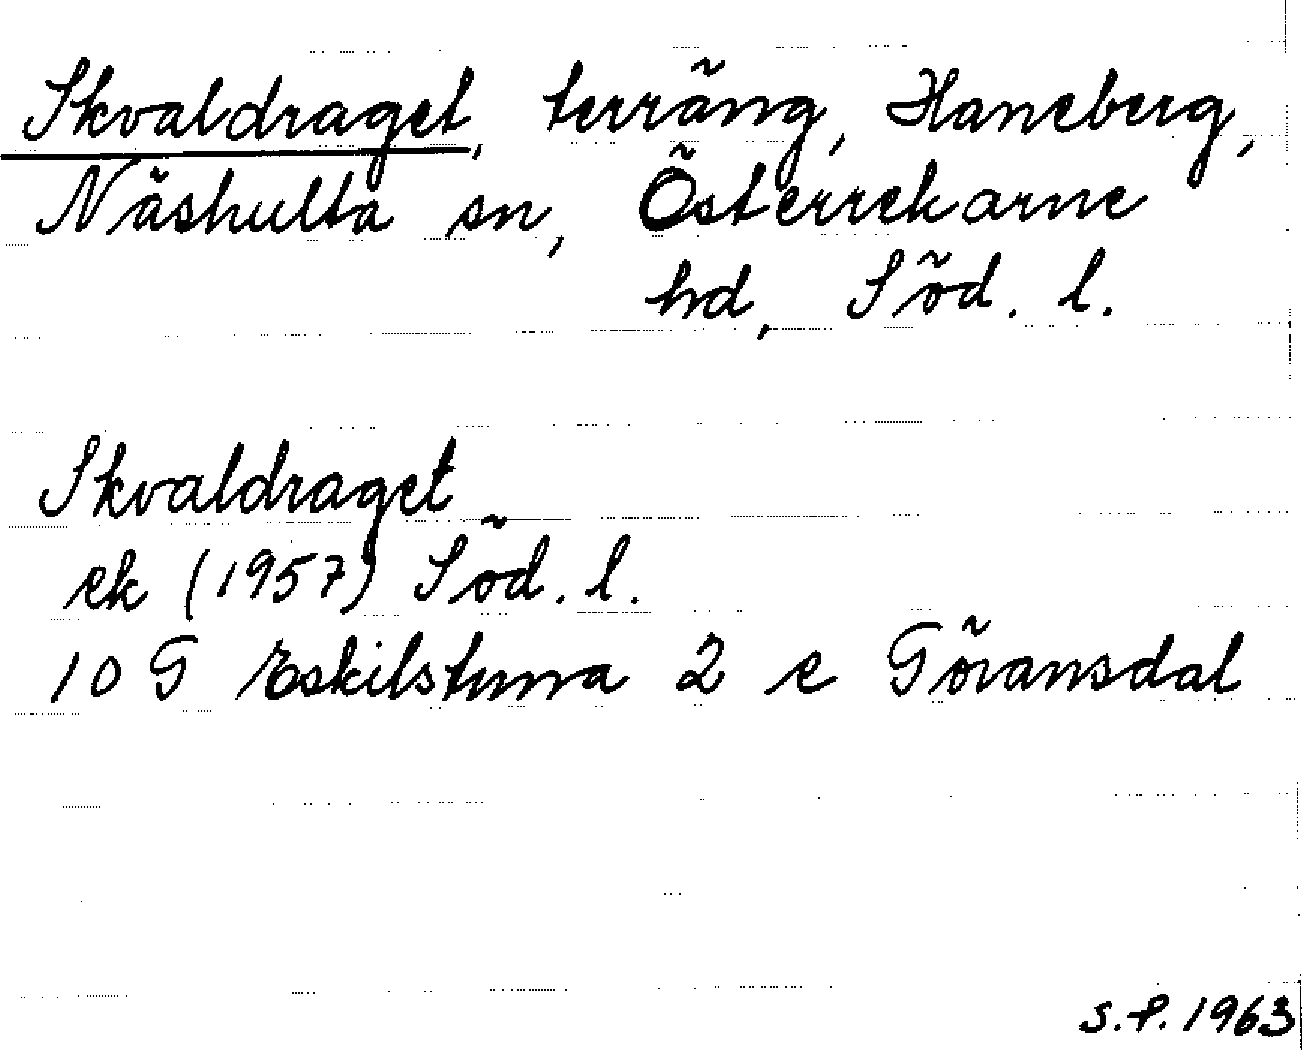 Skvaldraget, terräng, Haneberg,
Näshulta sn, Österrekarne
hd, Söd. l.
Skvaldraget
ek (1957) Söd. l.
10 G Eskilstuna 2 e Göransdal
S.P. 1963